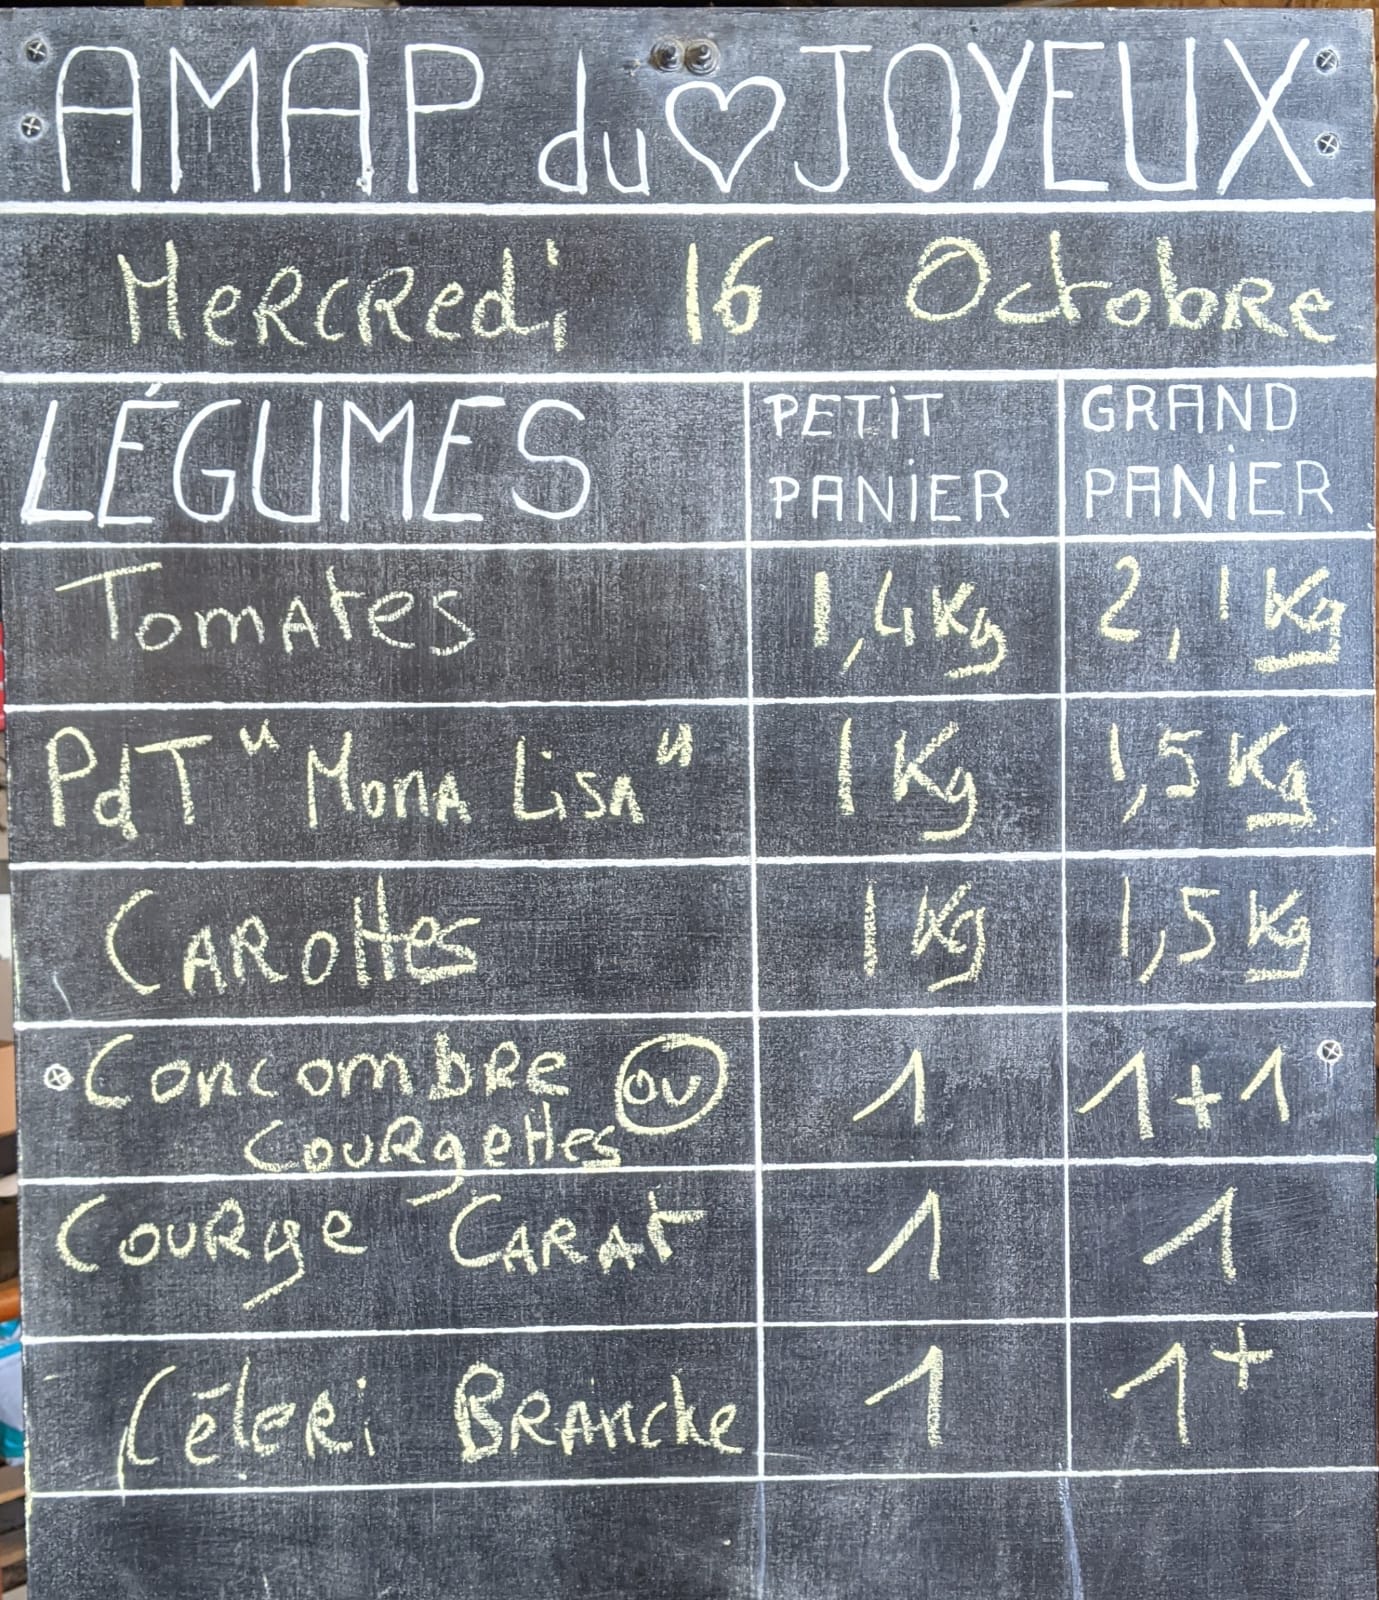 AMAP du ♡ JOYEUX
Mercredi 16 Octobre
LÉGUMES PETIT PANIER GRAND PANIER
Tomates 1,4 Kg 2,1 Kg
PdT "Mona Lisa" 1 Kg 1,5 Kg
Carottes 1 Kg 1,5 Kg
Concombre ou 1 1+1
Courgettes
Courge Carat 1 1
Céleri Branche 1 1+